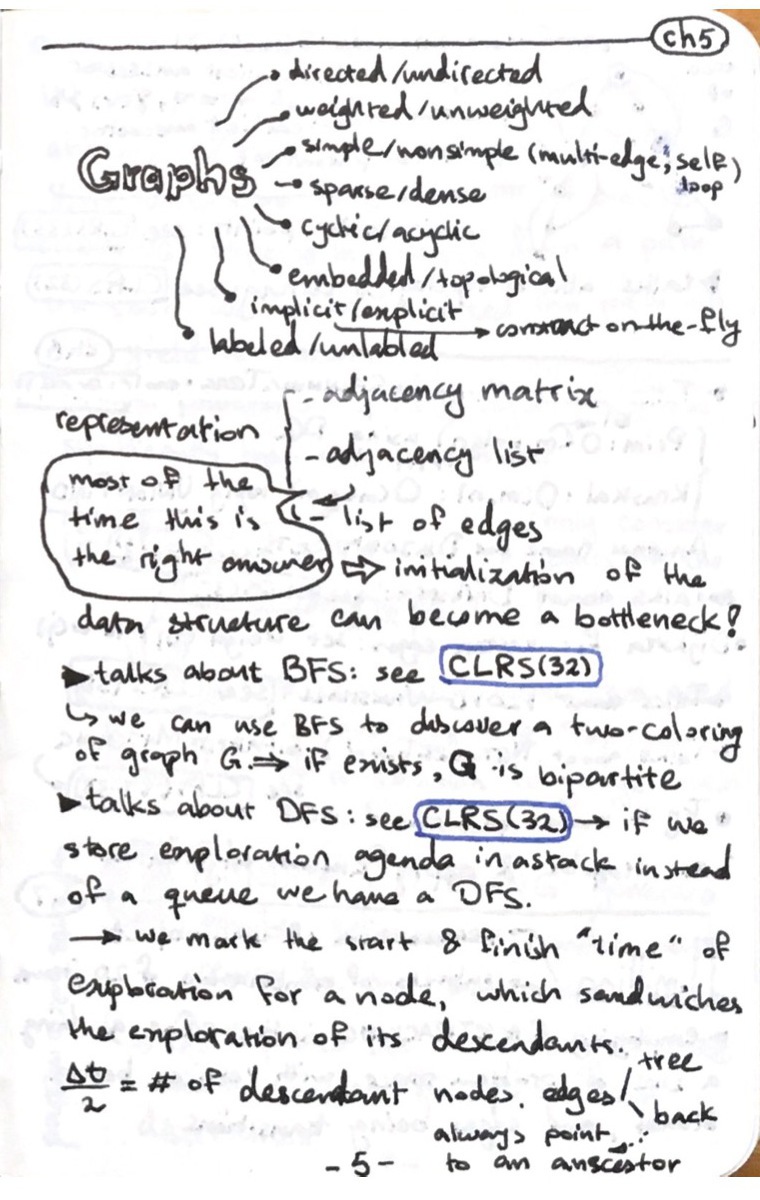 ch5
directed/undirected
weighted/unweighted
simple/nonsimple (multi-edge, self loop)
Graphs
sparse/dense
cyclic/acyclic
embedded/topological
implicit/explicit → construct on-the-fly
labeled/unlabled
representation
- adjacency matrix
- adjacency list
- list of edges
most of the
time this is
the right answer
⇒ initialization of the
data structure can become a bottleneck!
► talks about BFS: see CLRS(32)
↳ we can use BFS to discover a two-coloring
of graph G. ⇒ if exists, G is bipartite
► talks about DFS: see CLRS(32) → if we
store exploration agenda in a stack instead
of a queue we have a DFS.
→ we mark the start & finish "time" of
exploration for a node, which sandwiches
the exploration of its descendants.
Δt/2 = # of descendant nodes. edges / tree
\ back
always point
to an anscestor
- 5 -